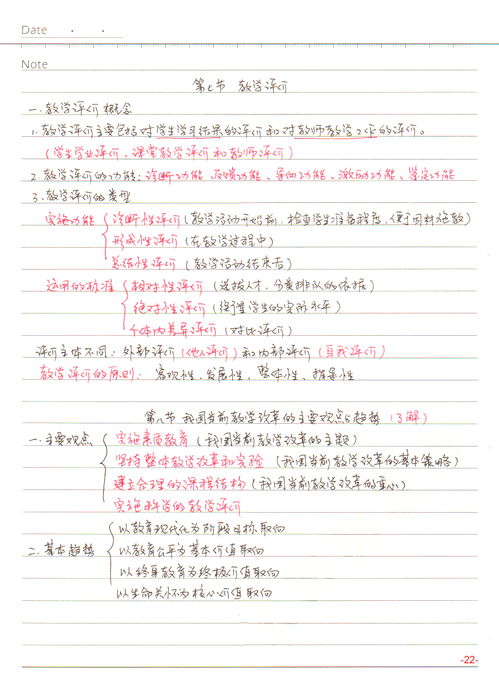 Date
Note
第七节 教学评价
一.教学评价概念
1.教学评价主要包括对学生学习结果的评价和对教师教学工作的评价。
(学生学业评价、课堂教学评价和教师评价)
2.教学评价的功能:诊断功能、反馈功能、导向功能、激励功能、鉴定功能
3.教学评价的类型
实施功能 诊断性评价(教学活动开始前,检查学生准备程度,便于因材施教)
形成性评价(在教学过程中)
总结性评价(教学活动结束后)
运用的标准 相对性评价(选拔人才,分类排队的依据)
绝对性评价(衡量学生的实际水平)
个体内差异评价(对比评价)
评价主体不同:外部评价(他人评价)和内部评价(自我评价)
教学评价的原则:客观性、发展性、整体性、指导性
第八节 我国当前教学改革的主要观点与趋势(了解)
一.主要观点 实施素质教育(我国当前教学改革的主题)
坚持整体教学改革和实验(我国当前教学改革的基本策略)
建立合理的课程结构(我国当前教学改革的重心)
实施科学的教学评价
以教育现代化为阶段目标取向
二.基本趋势 以教育公平为基本价值取向
以终身教育为终极价值取向
以生命关怀为核心价值取向
-22-